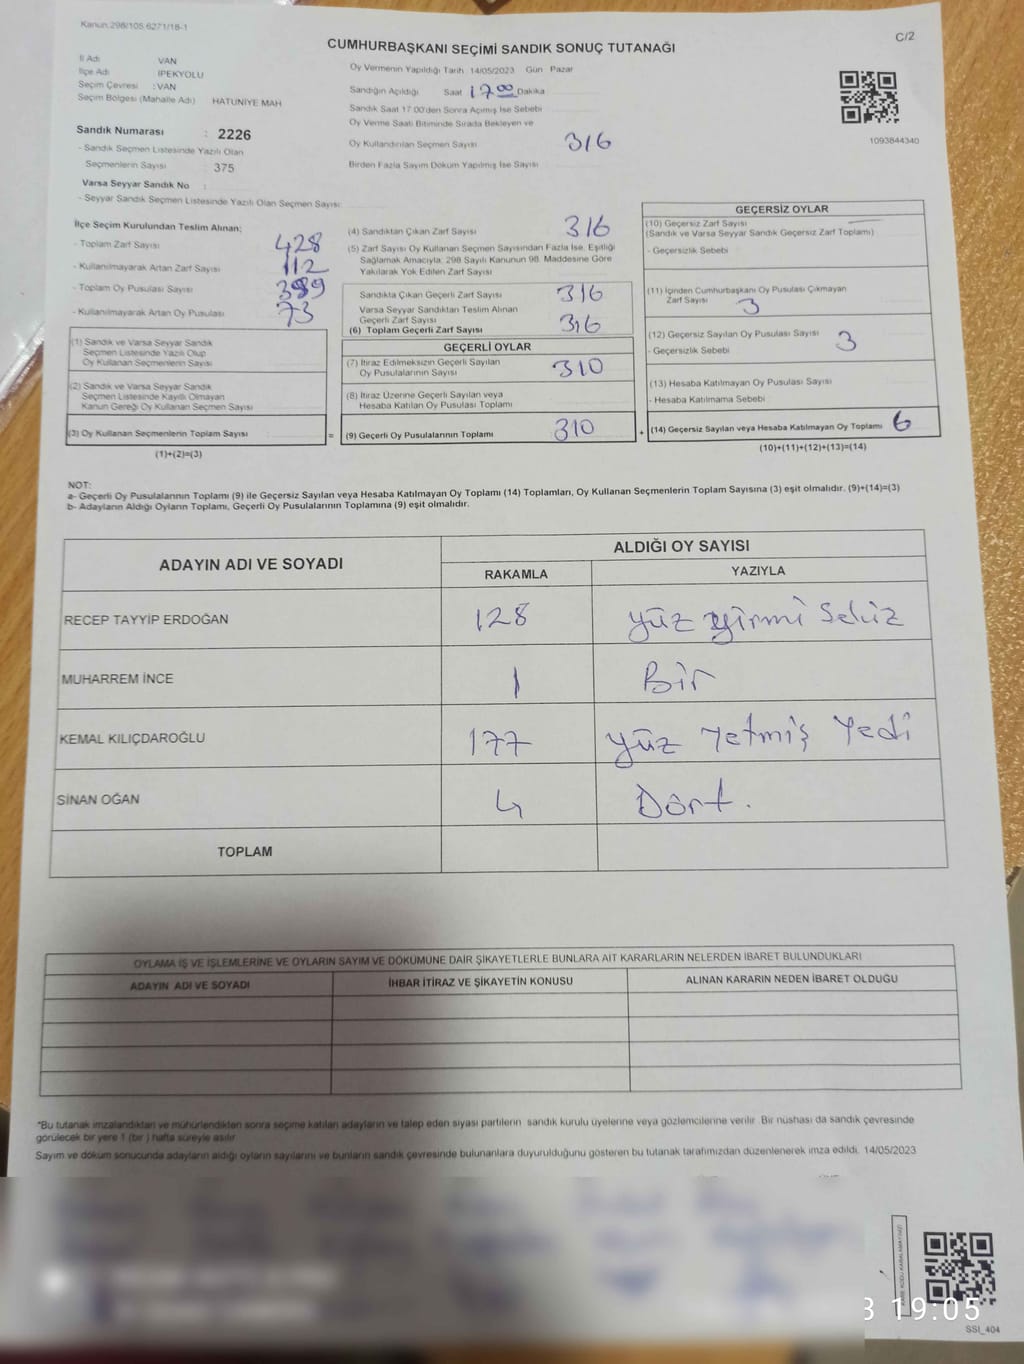 Kanun.298/105.6271/18-1
C/2
CUMHURBAŞKANI SEÇİMİ SANDIK SONUÇ TUTANAĞI
İl Adı VAN
İlçe Adı İPEKYOLU
Seçim Çevresi :VAN
Seçim Bölgesi (Mahalle Adı) HATUNİYE MAH
Sandık Numarası : 2226
- Sandık Seçmen Listesinde Yazılı Olan
Seçmenlerin Sayısı : 375
Varsa Seyyar Sandık No :
- Seyyar Sandık Seçmen Listesinde Yazılı Olan Seçmen Sayısı:
Oy Vermenin Yapıldığı Tarih 14/05/2023 Gün Pazar
Sandığın Açıldığı Saat 17 00 Dakika
Sandık Saat 17.00'den Sonra Açılmış İse Sebebi
Oy Verme Saati Bitiminde Sırada Bekleyen ve
Oy Kullandırılan Seçmen Sayısı 316
Birden Fazla Sayım Döküm Yapılmış İse Sayısı
1093844340
İlçe Seçim Kurulundan Teslim Alınan;
- Toplam Zarf Sayısı 428
- Kullanılmayarak Artan Zarf Sayısı 112
- Toplam Oy Pusulası Sayısı 389
- Kullanılmayarak Artan Oy Pusulası 73
(1) Sandık ve Varsa Seyyar Sandık
Seçmen Listesinde Yazılı Olup
Oy Kullanan Seçmenlerin Sayısı
(2) Sandık ve Varsa Seyyar Sandık
Seçmen Listesinde Kayıtlı Olmayan
Kanun Gereği Oy Kullanan Seçmen Sayısı
(3) Oy Kullanan Seçmenlerin Toplam Sayısı =
(1)+(2)=(3)
(4) Sandıktan Çıkan Zarf Sayısı 316
(5) Zarf Sayısı Oy Kullanan Seçmen Sayısından Fazla İse, Eşitliği
Sağlamak Amacıyla, 298 Sayılı Kanunun 98. Maddesine Göre
Yakılarak Yok Edilen Zarf Sayısı
Sandıkta Çıkan Geçerli Zarf Sayısı 316
Varsa Seyyar Sandıktan Teslim Alınan
Geçerli Zarf Sayısı
(6) Toplam Geçerli Zarf Sayısı 316
GEÇERLİ OYLAR
(7) İtiraz Edilmeksizin Geçerli Sayılan
Oy Pusulalarının Sayısı 310
(8) İtiraz Üzerine Geçerli Sayılan veya
Hesaba Katılan Oy Pusulası Toplamı
(9) Geçerli Oy Pusulalarının Toplamı 310 +
GEÇERSİZ OYLAR
(10) Geçersiz Zarf Sayısı
(Sandık ve Varsa Seyyar Sandık Geçersiz Zarf Toplamı)
- Geçersizlik Sebebi
(11) İçinden Cumhurbaşkanı Oy Pusulası Çıkmayan
Zarf Sayısı 3
(12) Geçersiz Sayılan Oy Pusulası Sayısı 3
- Geçersizlik Sebebi
(13) Hesaba Katılmayan Oy Pusulası Sayısı
- Hesaba Katılmama Sebebi
(14) Geçersiz Sayılan veya Hesaba Katılmayan Oy Toplamı 6
(10)+(11)+(12)+(13)=(14)
NOT:
a- Geçerli Oy Pusulalarının Toplamı (9) ile Geçersiz Sayılan veya Hesaba Katılmayan Oy Toplamı (14) Toplamları, Oy Kullanan Seçmenlerin Toplam Sayısına (3) eşit olmalıdır. (9)+(14)=(3)
b- Adayların Aldığı Oyların Toplamı, Geçerli Oy Pusulalarının Toplamına (9) eşit olmalıdır.
ADAYIN ADI VE SOYADI
ALDIĞI OY SAYISI
RAKAMLA YAZIYLA
RECEP TAYYİP ERDOĞAN 128 yüz yirmi sekiz
MUHARREM İNCE 1 Bir
KEMAL KILIÇDAROĞLU 177 yüz Yetmiş Yedi
SİNAN OĞAN 4 Dört.
TOPLAM
OYLAMA İŞ VE İŞLEMLERİNE VE OYLARIN SAYIM VE DÖKÜMÜNE DAİR ŞİKAYETLERLE BUNLARA AİT KARARLARIN NELERDEN İBARET BULUNDUKLARI
ADAYIN ADI VE SOYADI İHBAR İTİRAZ VE ŞİKAYETİN KONUSU ALINAN KARARIN NEDEN İBARET OLDUĞU
*Bu tutanak imzalandıktan ve mühürlendikten sonra seçime katılan adayların ve talep eden siyasi partilerin sandık kurulu üyelerine veya gözlemcilerine verilir. Bir nüshası da sandık çevresinde
görülecek bir yere 1 (bir ) hafta süreyle asılır.
Sayım ve döküm sonucunda adayların aldığı oyların sayılarını ve bunların sandık çevresinde bulunanlara duyurulduğunu gösteren bu tutanak tarafımızdan düzenlenerek imza edildi. 14/05/2023
19:05
SSI_404